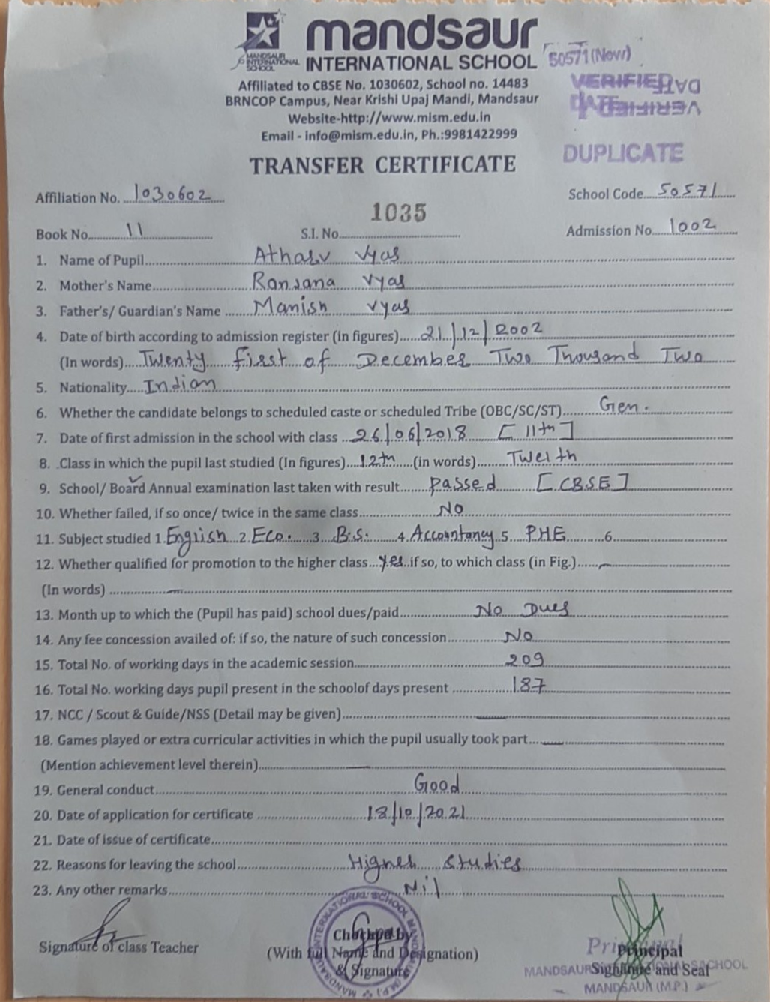 mandsaur
MANDSAUR INTERNATIONAL SCHOOL
INTERNATIONAL SCHOOL
50571 (Novr)
Affiliated to CBSE No. 1030602, School no. 14483
BRNCOP Campus, Near Krishi Upaj Mandi, Mandsaur
Website-http://www.mism.edu.in
Email - info@mism.edu.in, Ph.:9981422999
VERIFIED
DATE
VERIFIED
DATE
DUPLICATE
TRANSFER CERTIFICATE
Affiliation No. 1030602 School Code 50571
1035
Book No. 11 S.I. No. Admission No. 1002
1. Name of Pupil Atharv Vyas
2. Mother's Name Ranjana Vyas
3. Father's/ Guardian's Name Manish Vyas
4. Date of birth according to admission register (in figures) 21/12/2002
(In words) Twenty first of December Two Thousand Two
5. Nationality Indian
6. Whether the candidate belongs to scheduled caste or scheduled Tribe (OBC/SC/ST) Gen.
7. Date of first admission in the school with class 26/06/2018 [11th]
8. Class in which the pupil last studied (In figures) 12th (in words) Twelth
9. School/ Board Annual examination last taken with result passed [CBSE]
10. Whether failed, if so once/ twice in the same class No
11. Subject studied 1 English 2. Eco. 3. B.S. 4. Accountancy 5. PHE 6.
12. Whether qualified for promotion to the higher class yes if so, to which class (in Fig.) -
(In words)
13. Month up to which the (Pupil has paid) school dues/paid No Dues
14. Any fee concession availed of: if so, the nature of such concession No
15. Total No. of working days in the academic session 209
16. Total No. working days pupil present in the schoolof days present 187
17. NCC / Scout & Guide/NSS (Detail may be given)
18. Games played or extra curricular activities in which the pupil usually took part
(Mention achievement level therein)
19. General conduct Good
20. Date of application for certificate 18/10/2021
21. Date of issue of certificate
22. Reasons for leaving the school Higher Studies
23. Any other remarks Nil
Signature of class Teacher
Checked by
(With full Name and Designation)
& Signature
INTERNATIONAL SCHOOL MANDSAUR (M.P.)
Principal
Principal
Signature and Seal
MANDSAUR INTERNATIONAL SCHOOL
MANDSAUR (M.P.)